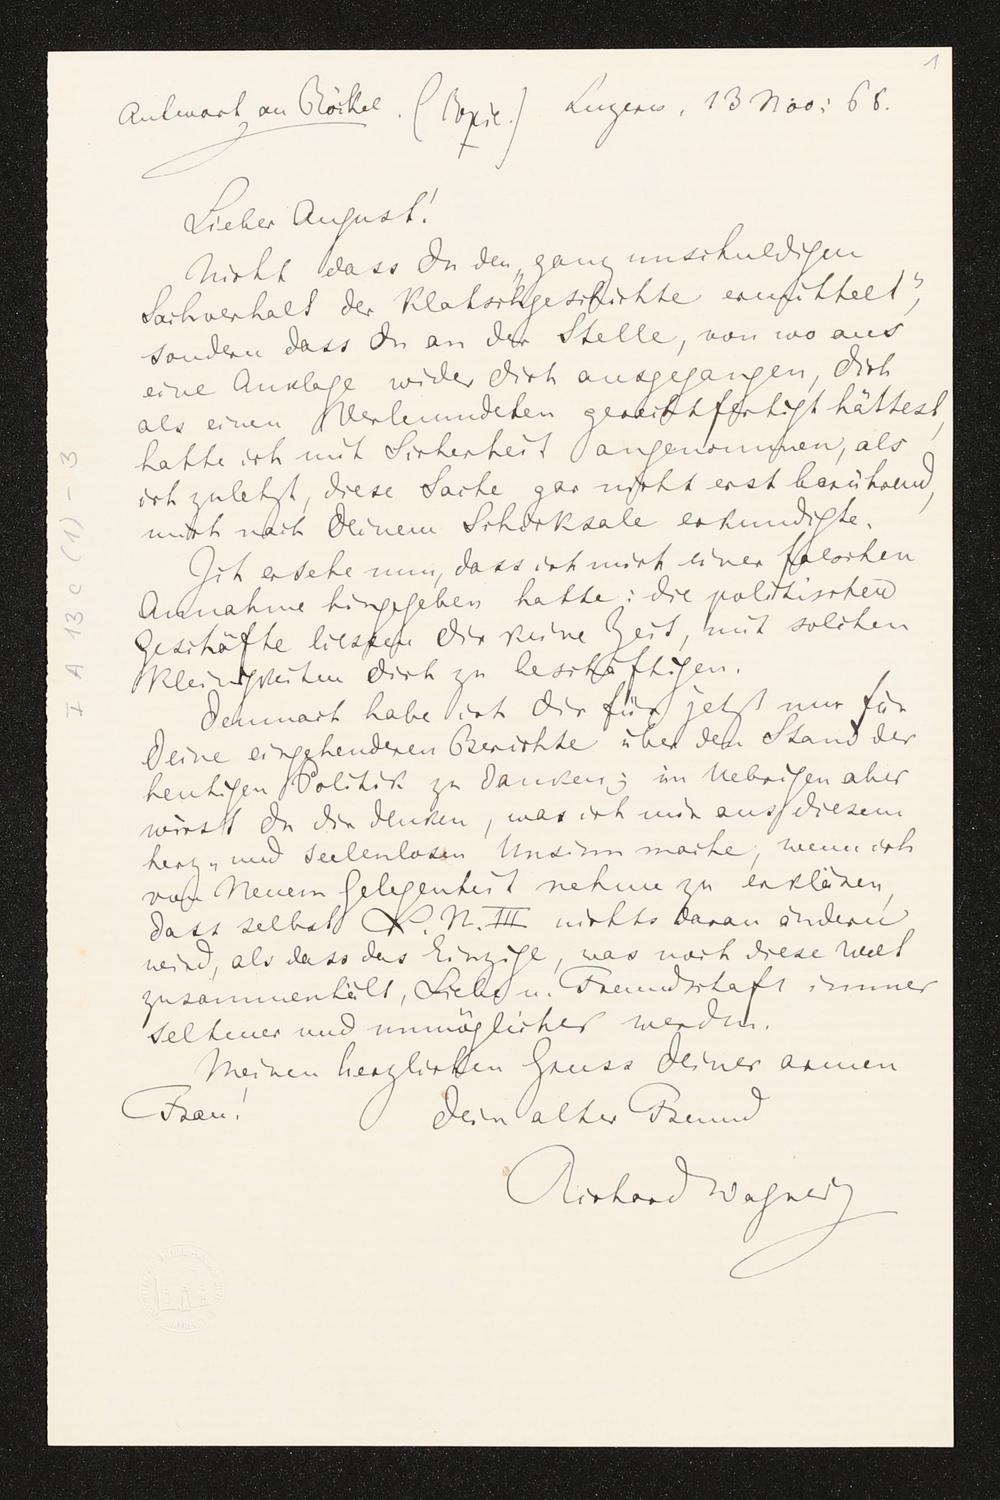 1
Antwort an Röckel. (Copie.) Luzern, 13 Nov: 68.
Lieber August!
Nicht dass Du den „ganz unschuldigen
Sachverhalt der Klatschgeschichte ermittelt",
sondern dass Du an der Stelle, von wo aus
eine Anklage wider Dich ausgegangen, Dich
als einen Verleumdeten gerechtfertigt hättest,
hatte ich mit Sicherheit angenommen, als
ich zuletzt, diese Sache gar nicht erst berührend,
mich nach Deinem Schicksale erkundigte.
Ich ersehe nun, dass ich mich einer falschen
Annahme hingegeben hatte: die politischen
Geschäfte liessen Dir keine Zeit, mit solchen
Kleinigkeiten Dich zu beschäftigen.
Demnach habe ich Dir für jetzt nur für
Deine eingehenderen Berichte über den Stand der
heutigen Politik zu danken; im Uebrigen aber
wirst Du Dir denken, was ich mir aus diesem
herz- und seelenlosen Unsinn mache, wenn ich
von Neuem Gelegenheit nehme zu erklären,
dass selbst K. N. III nichts daran ändern
wird, als dass das Einzige, was noch diese Welt
zusammenhält, Liebe u. Freundschaft immer
seltener und unmöglicher werden.
Meinen herzlichen Gruss Deiner armen
Frau! Dein alter Freund
Richard Wagner
I A 13 c (1) - 3